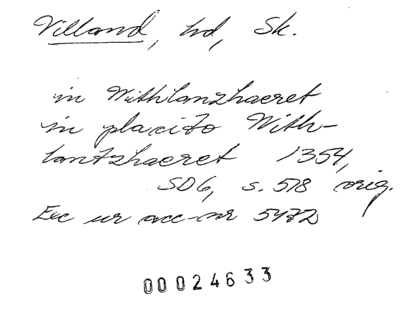 Villand, hd, Sk.
in Withlanzhaeret
in placito With-
lantzhaeret 1354,
SD6, s. 518 orig.
Exc ur acc-nr 5472
00024633